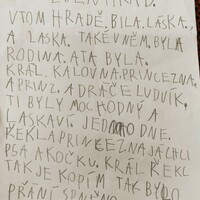 VTOM HRADĚ. BILA. LÁSKA.,
A LASKA. TAKÉ VNĚM. BYLA
RODINA. ATA BYLA.
KRÁL. KALOVNA. PRINCEZNA.
A PRINZ. A DRÁČE LUDVÍK,
TI BYLY MOCHODNÝ A
LASKAVÍ. JEDNO DNE.
ŘEKLA PRINCEZNA JÁ CHLI
PSA A KOČKU. KRÁL ŘEKL
TAK JE KOPÍM TAK BYLO
PŘÁNÍ SPLNĚNO